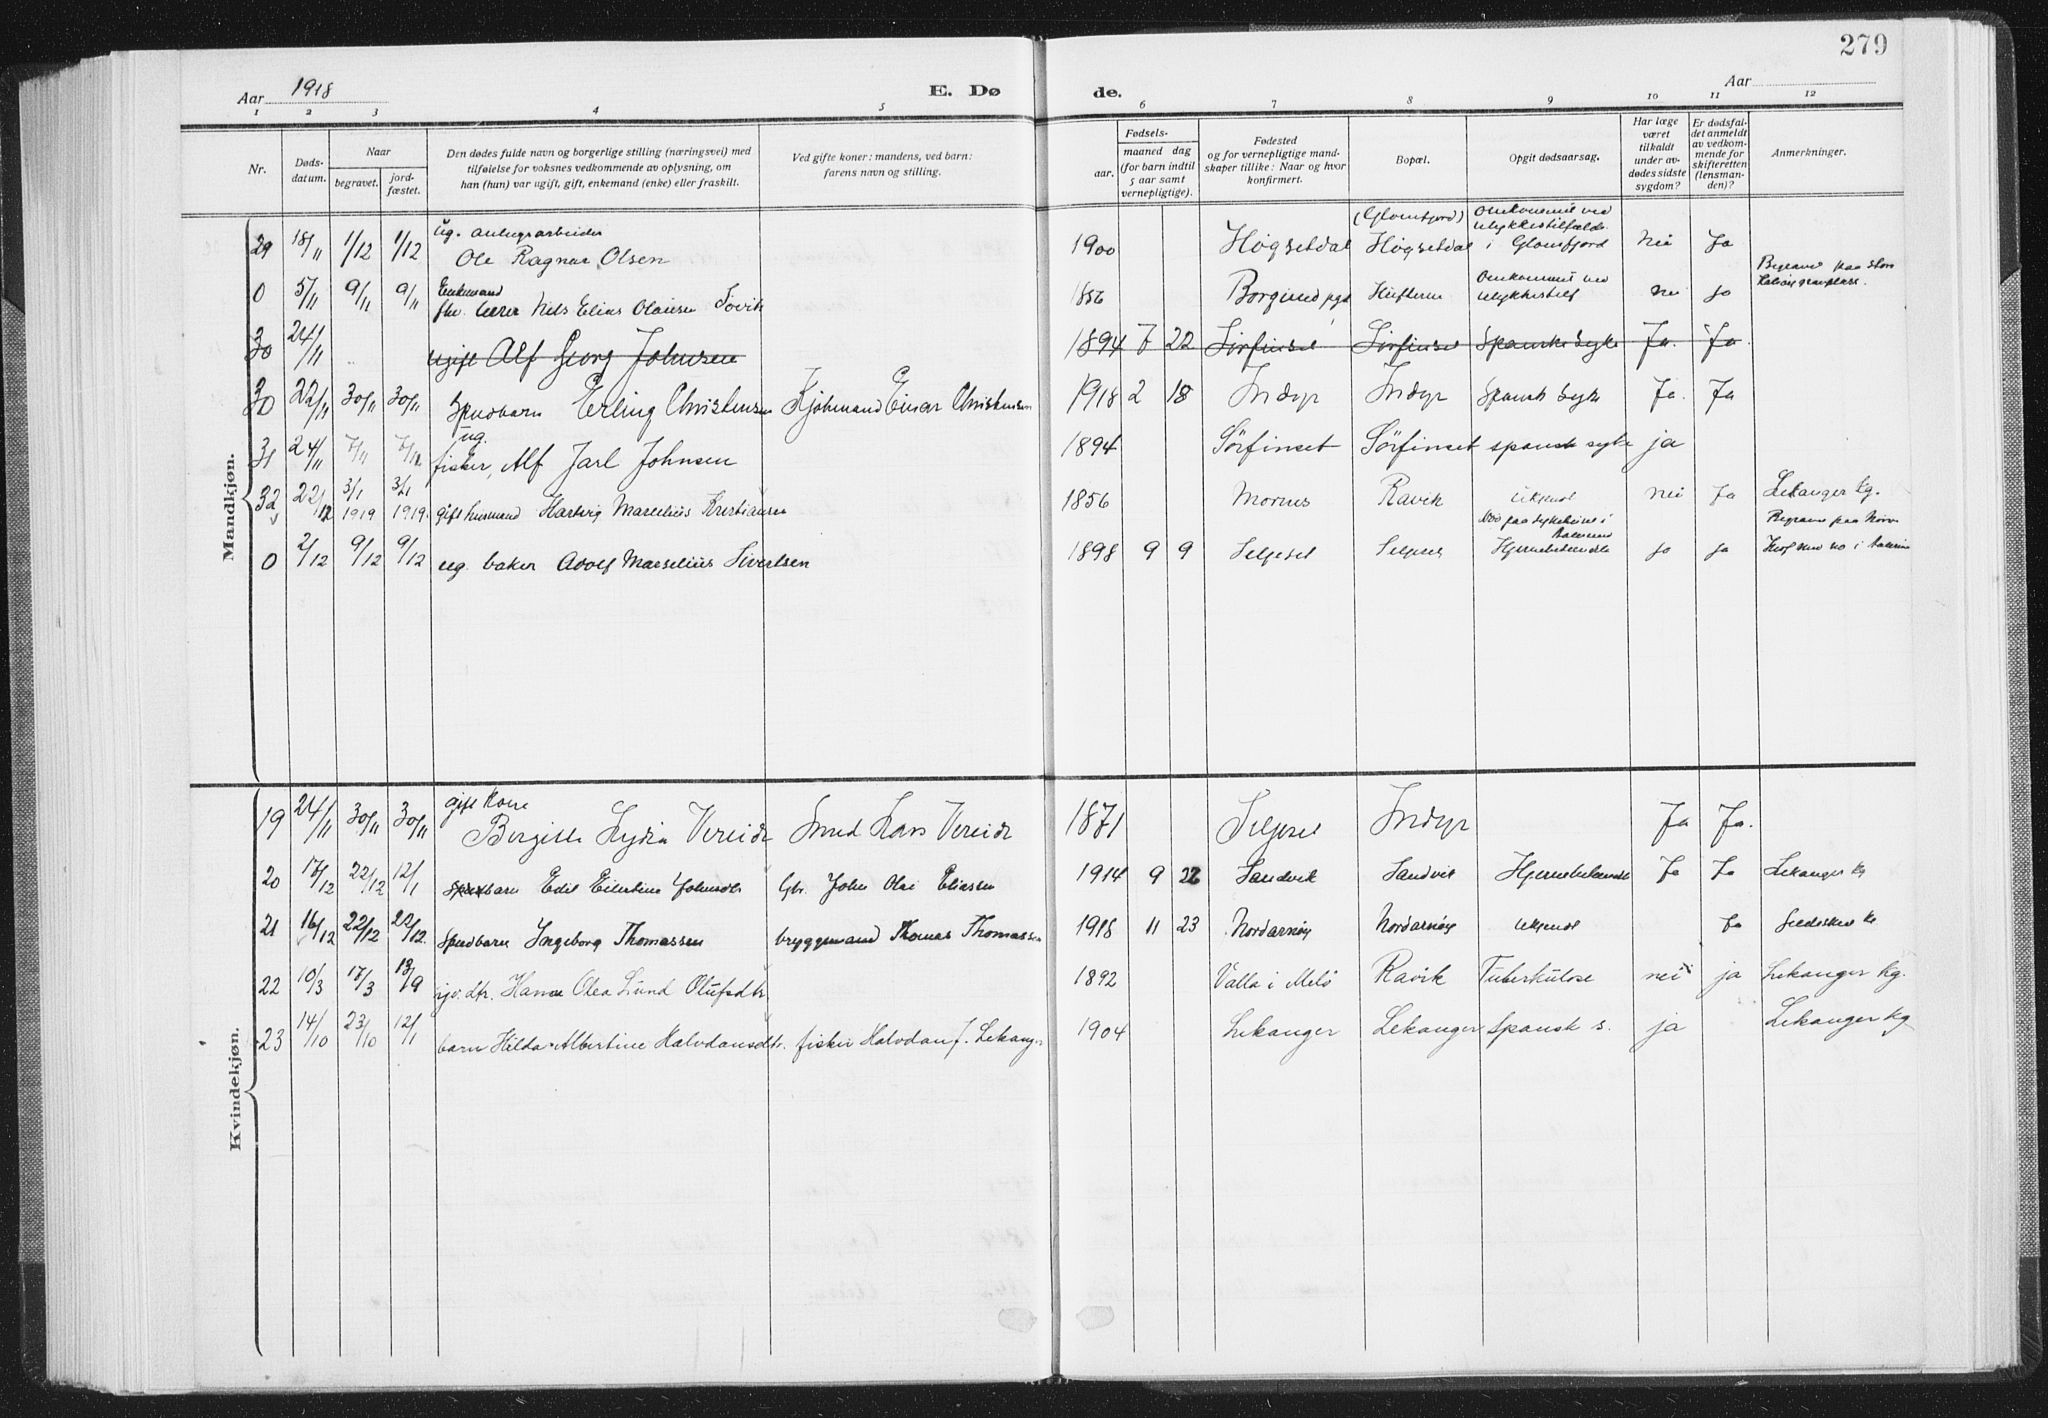 279
Aar 1918
E. Dø
de.
Aar
1 2 3 4 5 6 7 8 9 10 11 12
Nr.
Døds-
datum.
Naar
begravet.
jord-
fæstet.
Den dødes fulde navn og borgerlige stilling (næringsvei) med
tilføielse for voksnes vedkommende av oplysning, om
han (hun) var ugift, gift, enkemand (enke) eller fraskilt.
Ved gifte koner: mandens, ved barn:
farens navn og stilling.
Fødsels-
aar.
maaned dag
(for barn indtil
5 aar samt
vernepligtige).
Fødested
og for vernepligtige mand-
skaper tillike: Naar og hvor
konfirmert.
Bopæl.
Opgit dødsaarsag.
Har læge
været
tilkaldt
under av-
dødes sidste
sygdom?
Er dødsfal-
det anmeldt
av vedkom-
mende for
skifteretten
(lensman-
den)?
Anmerkninger.
Mandkjøn.
ug. anlegsarbeider (Glomfjord) Omkommet ved
ulykkestilfælde
29 18/11 1/12 1/12 Ole Ragnar Olsen 1900 Høgsetdal Høgsetdal i Glomfjord nei Ja
Enkemand Omkommet ved Begravet paa
0 5/11 9/11 9/11 fhv. lærer Nils Elias Olausen Søvik 1856 Borgund pgd ulykkestilf nei ja
30 24/11 ugift Alf Georg Johnsen 1894 7 22 Sørfinset Sørfinset Spanske syke Ja. Ja
30 22/11 30/11 30/11 Spedbarn Erling Christensen Kjøbmand Einar Christensen 1918 2 18 Indyr Indyr Spansk syke Ja. Ja
ug.
31 24/11 7/11 7/12 fisker, Alf Jarl Johnsen 1894 Sörfinset Sörfinset spansk syke ja
32 22/12 3/1 1919 3/1 1919. gift husmand Hartvig Marcelius Kristiansen 1856 Mornes Ravik ukjendt nei Ja Lekanger kg.
Død paa sykehuset i Begravet paa
0 2/12 9/12 9/12 ug. baker Adolf Marselius Sivertsen 1898 9 9 Selseset Selseset Hjernebetændelse ja ja
Kvindekjøn.
gift kone
19 24/11 30/11 30/11 Bergitte Lydia Vereide Smed Lars Vereide 1871 Indyr Ja Ja.
20 17/12 22/12 12/1 barn Edel Eilertine Johnsdtr Gbr. John Olai Eliassen 1914 9 22 Sandvik Sandvik Hjernebetændelse Ja Ja Lekanger kg
21 16/12 22/12 22/12. Spedbarn Ingeborg Thomassen bryggemand Thomas Thomassen 1918 11 23 Nordarnøy Nordarnøy ukjendt Ja Gildeskaal k
22 10/3 17/3 13/9 Hanna Olea Lund Olufsdtr 1892 Valla i Melö Ravik Tuberkulose nei ja Lekanger kg.
23 14/10 23/10 12/1 barn Hilda Albertine Halvdansdtr. fisker Halvdan J. Lekanger 1904 Lekanger Lekanger Spansk s. ja Lekanger kg